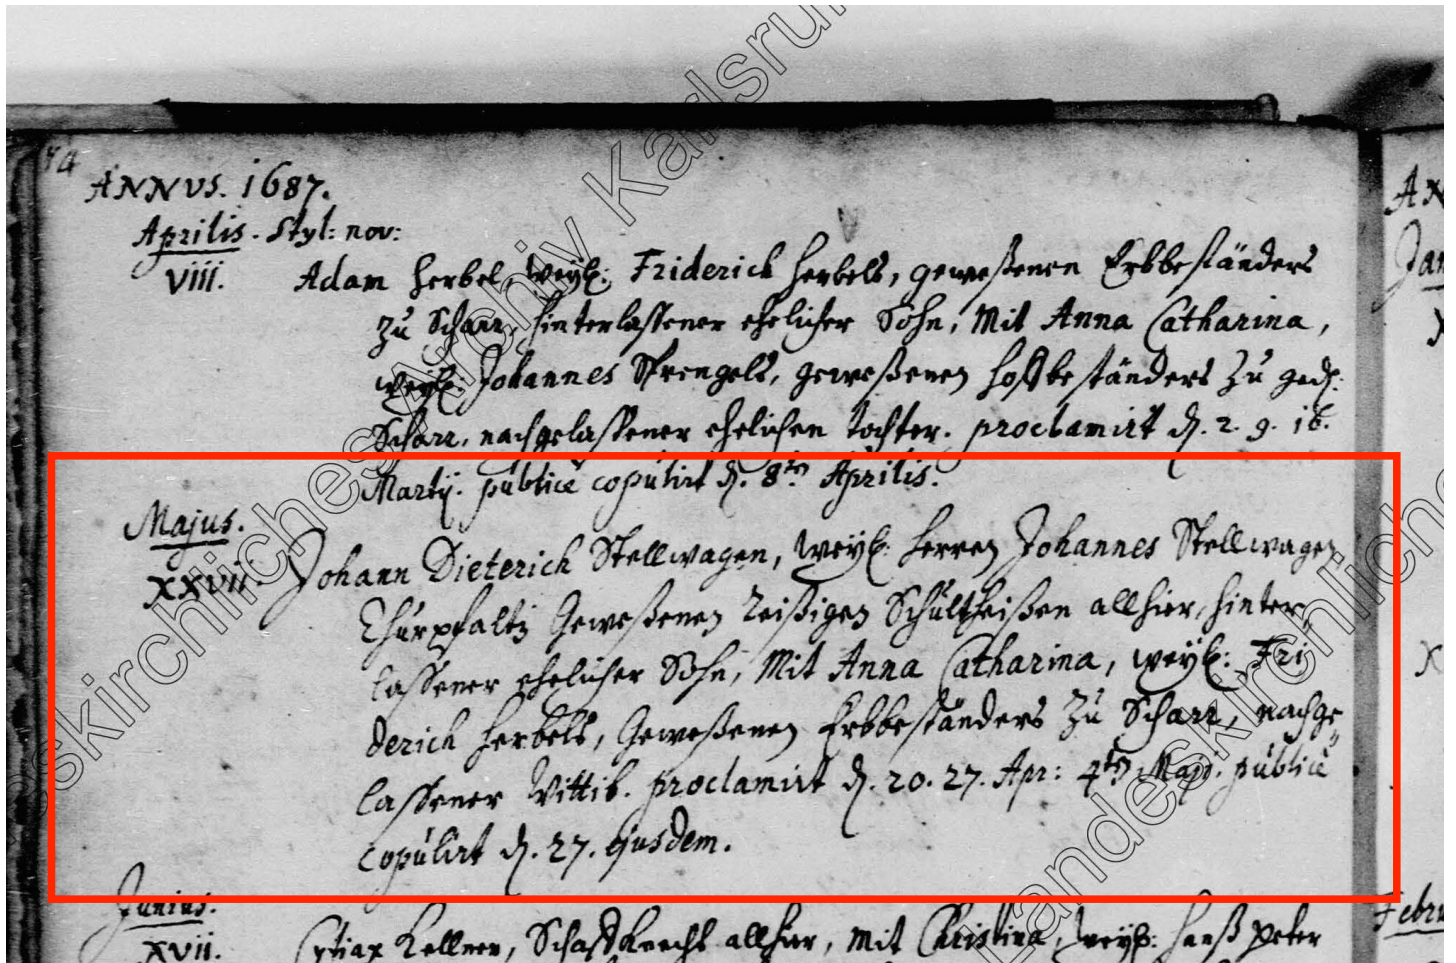 ANNVS. 1687.
Aprilis. Styl: nov:
VIII. Adam Herbel, weyl: Friderich Herbels, geweßenen Erbbeständers
zu Scharr, hinterlassener ehelicher Sohn, Mit Anna Catharina,
weyl: Johannes Sprengels, geweßenen Hoffbeständers zu ged:
Scharr, nachgelassener ehelichen Tochter. proclamirt d. 2. 9. 16.
Martij. publicè copulirt d. 8ten Aprilis.
Majus.
XXVII. Johann Dieterich Stellwagen, weyl: Herren Johannes Stellwagen
Churpfaltz Geweßenen reißigen Schultheißen allhier, hinter
lassener ehelicher Sohn, Mit Anna Catharina, weyl: Fri
derich Herbels, Geweßenen Erbbeständers zu Scharr, nachge
lassener Wittib. proclamirt d. 20. 27. Apr: 4ten Maji. publicè
copulirt d. 27. ejusdem.
Junius.
XVII. Kellner, Schaffknecht allhier, mit Christina, weyl: Hanß Peter
AN
Jan
X
X
Febru
Landeskirchliches Archiv Karlsruhe
Landeskirchliches